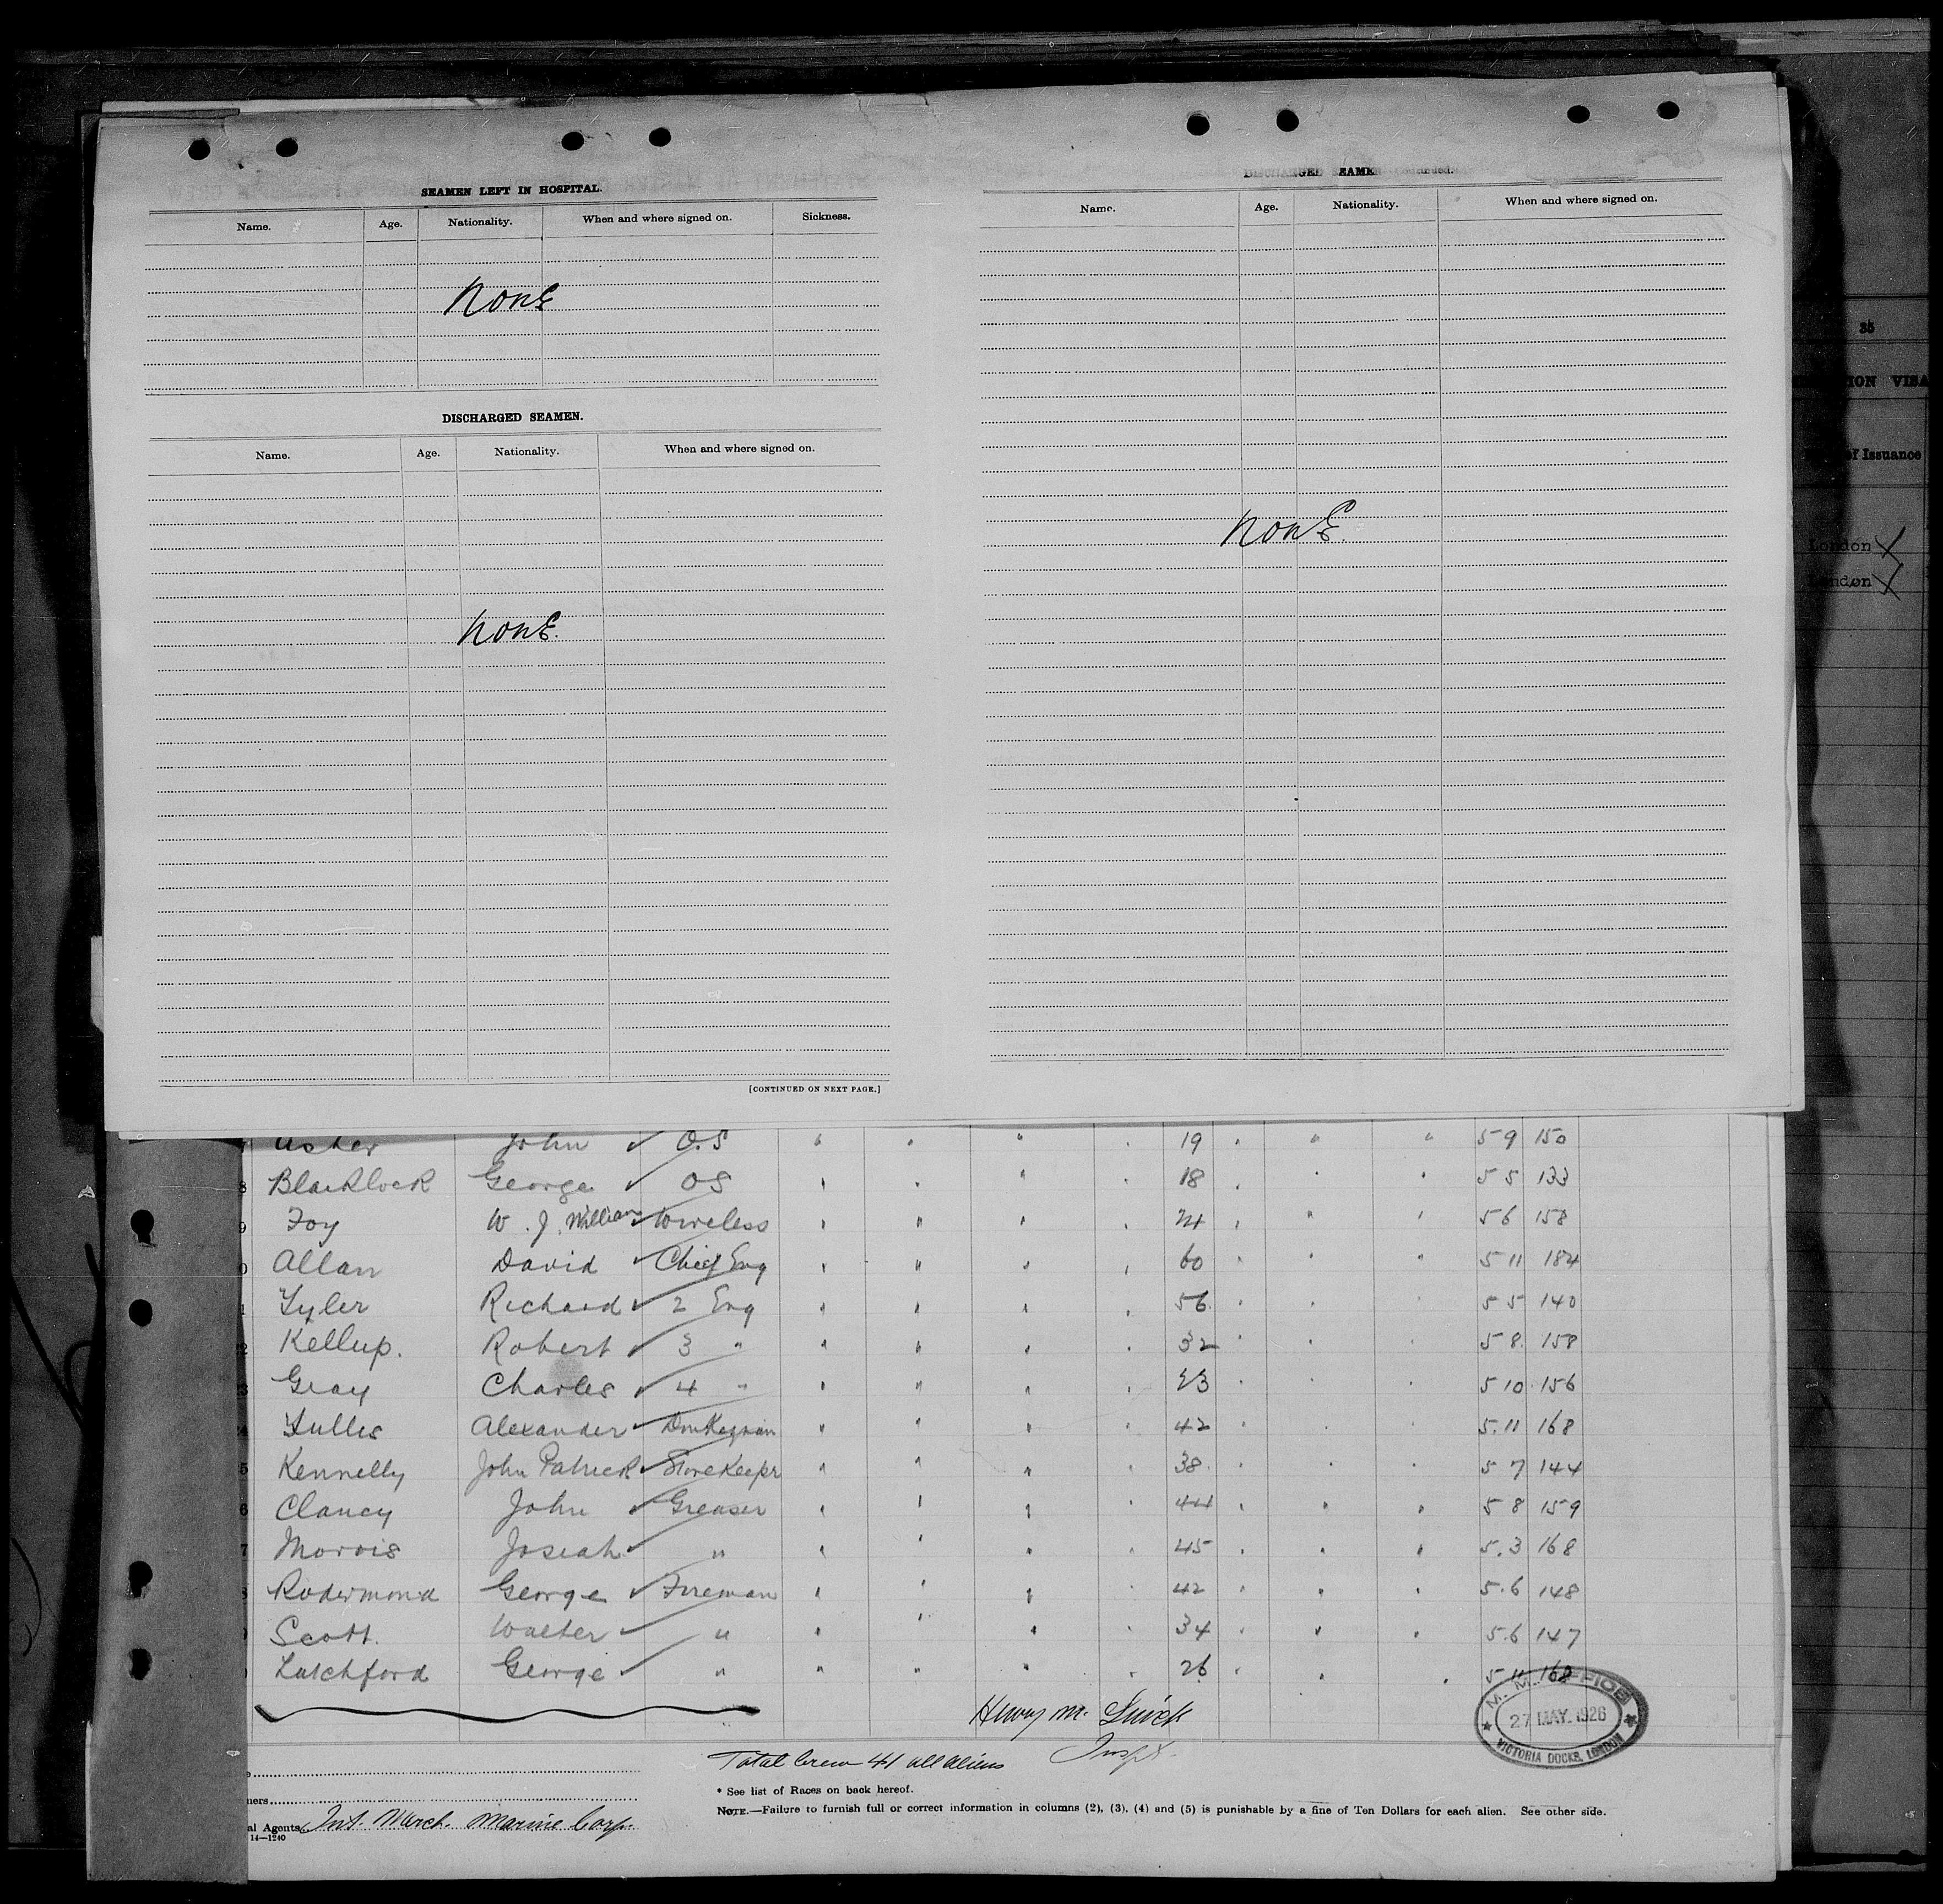 SEAMEN LEFT IN HOSPITAL.
Name. Age. Nationality. When and where signed on. Sickness.
None
DISCHARGED SEAMEN.
Name. Age. Nationality. When and where signed on.
None.
[CONTINUED ON NEXT PAGE.]
DISCHARGED SEAMEN—Continued.
Name. Age. Nationality. When and where signed on.
None.
35
ION VISA
of Issuance
London X
London X
Usher John ✓ O.S " " " " 19 " " " 5 9 150
8 Blacklock George ✓ OS " " " " 18 " " " 5 5 133
9 Foy W. J. William ✓ Wireless " " " " 24 " " " 5 6 158
0 Allan David ✓ Chief Eng " " " " 60 " " " 5 11 184
1 Tyler Richard ✓ 2 Eng " " " " 56 " " " 5 5 140
2 Kellup. Robert ✓ 3 " " " " " 32 " " " 5 8 158
3 Gray Charles ✓ 4 " " " " " 23 " " " 5 10 156
4 Tullis Alexander ✓ Donkeyman " " " " 42 " " " 5.11 168
5 Kennelly John Patrick ✓ StoreKeepr " " " " 38 " " " 5 7 144
6 Clancy John ✓ Greaser " " " " 44 " " " 5 8 159
7 Morris Josiah ✓ " " " " " 45 " " " 5.3 168
8 Rodermond George ✓ Fireman " " " " 42 " " " 5.6 148
Scott. Walter ✓ " " " " " 34 " " " 5.6 147
Latchford George ✓ " " " " " 26 " " " 5 11 168
Henry M.
Inspt.
M. M. OFFICE
27 MAY. 1926
VICTORIA DOCKS, LONDON
Total Crew 41 all aliens
* See list of Races on back hereof.
NOTE.—Failure to furnish full or correct information in columns (2), (3), (4) and (5) is punishable by a fine of Ten Dollars for each alien. See other side.
ners
al Agents Int. Merch. Marine Corp.
14—1240